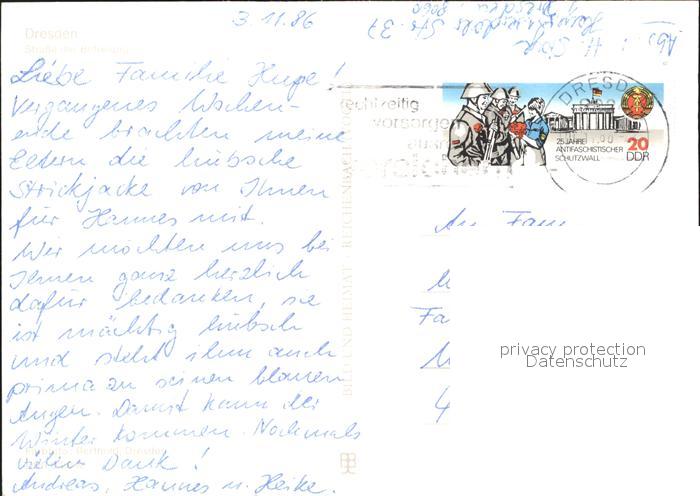 3.11.86
Dresden
Straße der Befreiung
Liebe Familie Hupe!
Vergangenes Wochen-
ende brachten meine
Eltern die hübsche
Strickjacke von Ihnen
für Hannes mit.
Wir möchten uns bei
Ihnen ganz herzlich
dafür bedanken, sie
ist mächtig hübsch
und steht ihm auch
prima zu seinen blauen
Augen. Damit kann der
Winter kommen. Nochmals
vielen Dank!
Andreas, Hannes u. Heike.
BILD UND HEIMAT REICHENBACH
Abs.: H.
Dresden
rechtzeitig
vorsorgen
DRESD
25 JAHRE
ANTIFASCHISTISCHER
SCHUTZWALL
20
DDR
An Fam
Fa
4
privacy protection
Datenschutz